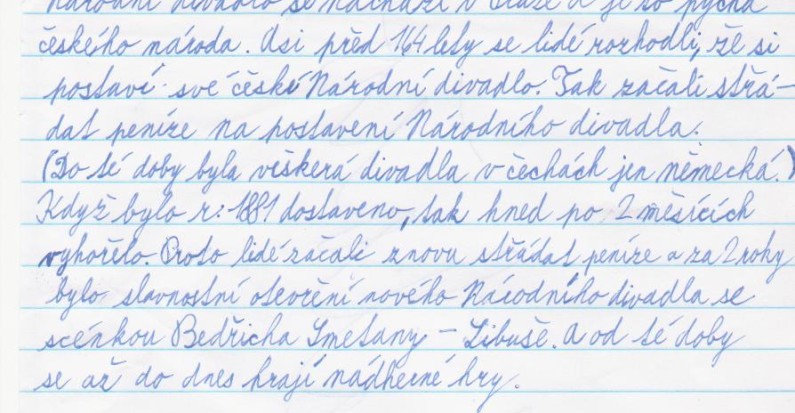 Národní divadlo se nachází v Praze a je to pýcha
českého národa. Asi před 164 lety se lidé rozhodli, že si
postaví své české Národní divadlo. Tak začali střá-
dat peníze na postavení Národního divadla.
(Do té doby byla veškerá divadla v čechách jen německá.)
Když bylo r: 1881 dostaveno, tak hned po 2 měsících
vyhořelo. Proto lidé začali znovu střádat peníze a za 2 roky
bylo slavnostní otevření nového Národního divadla se
scénkou Bedřicha Smetany - Libuše. A od té doby
se až do dnes hrají nádherné hry.